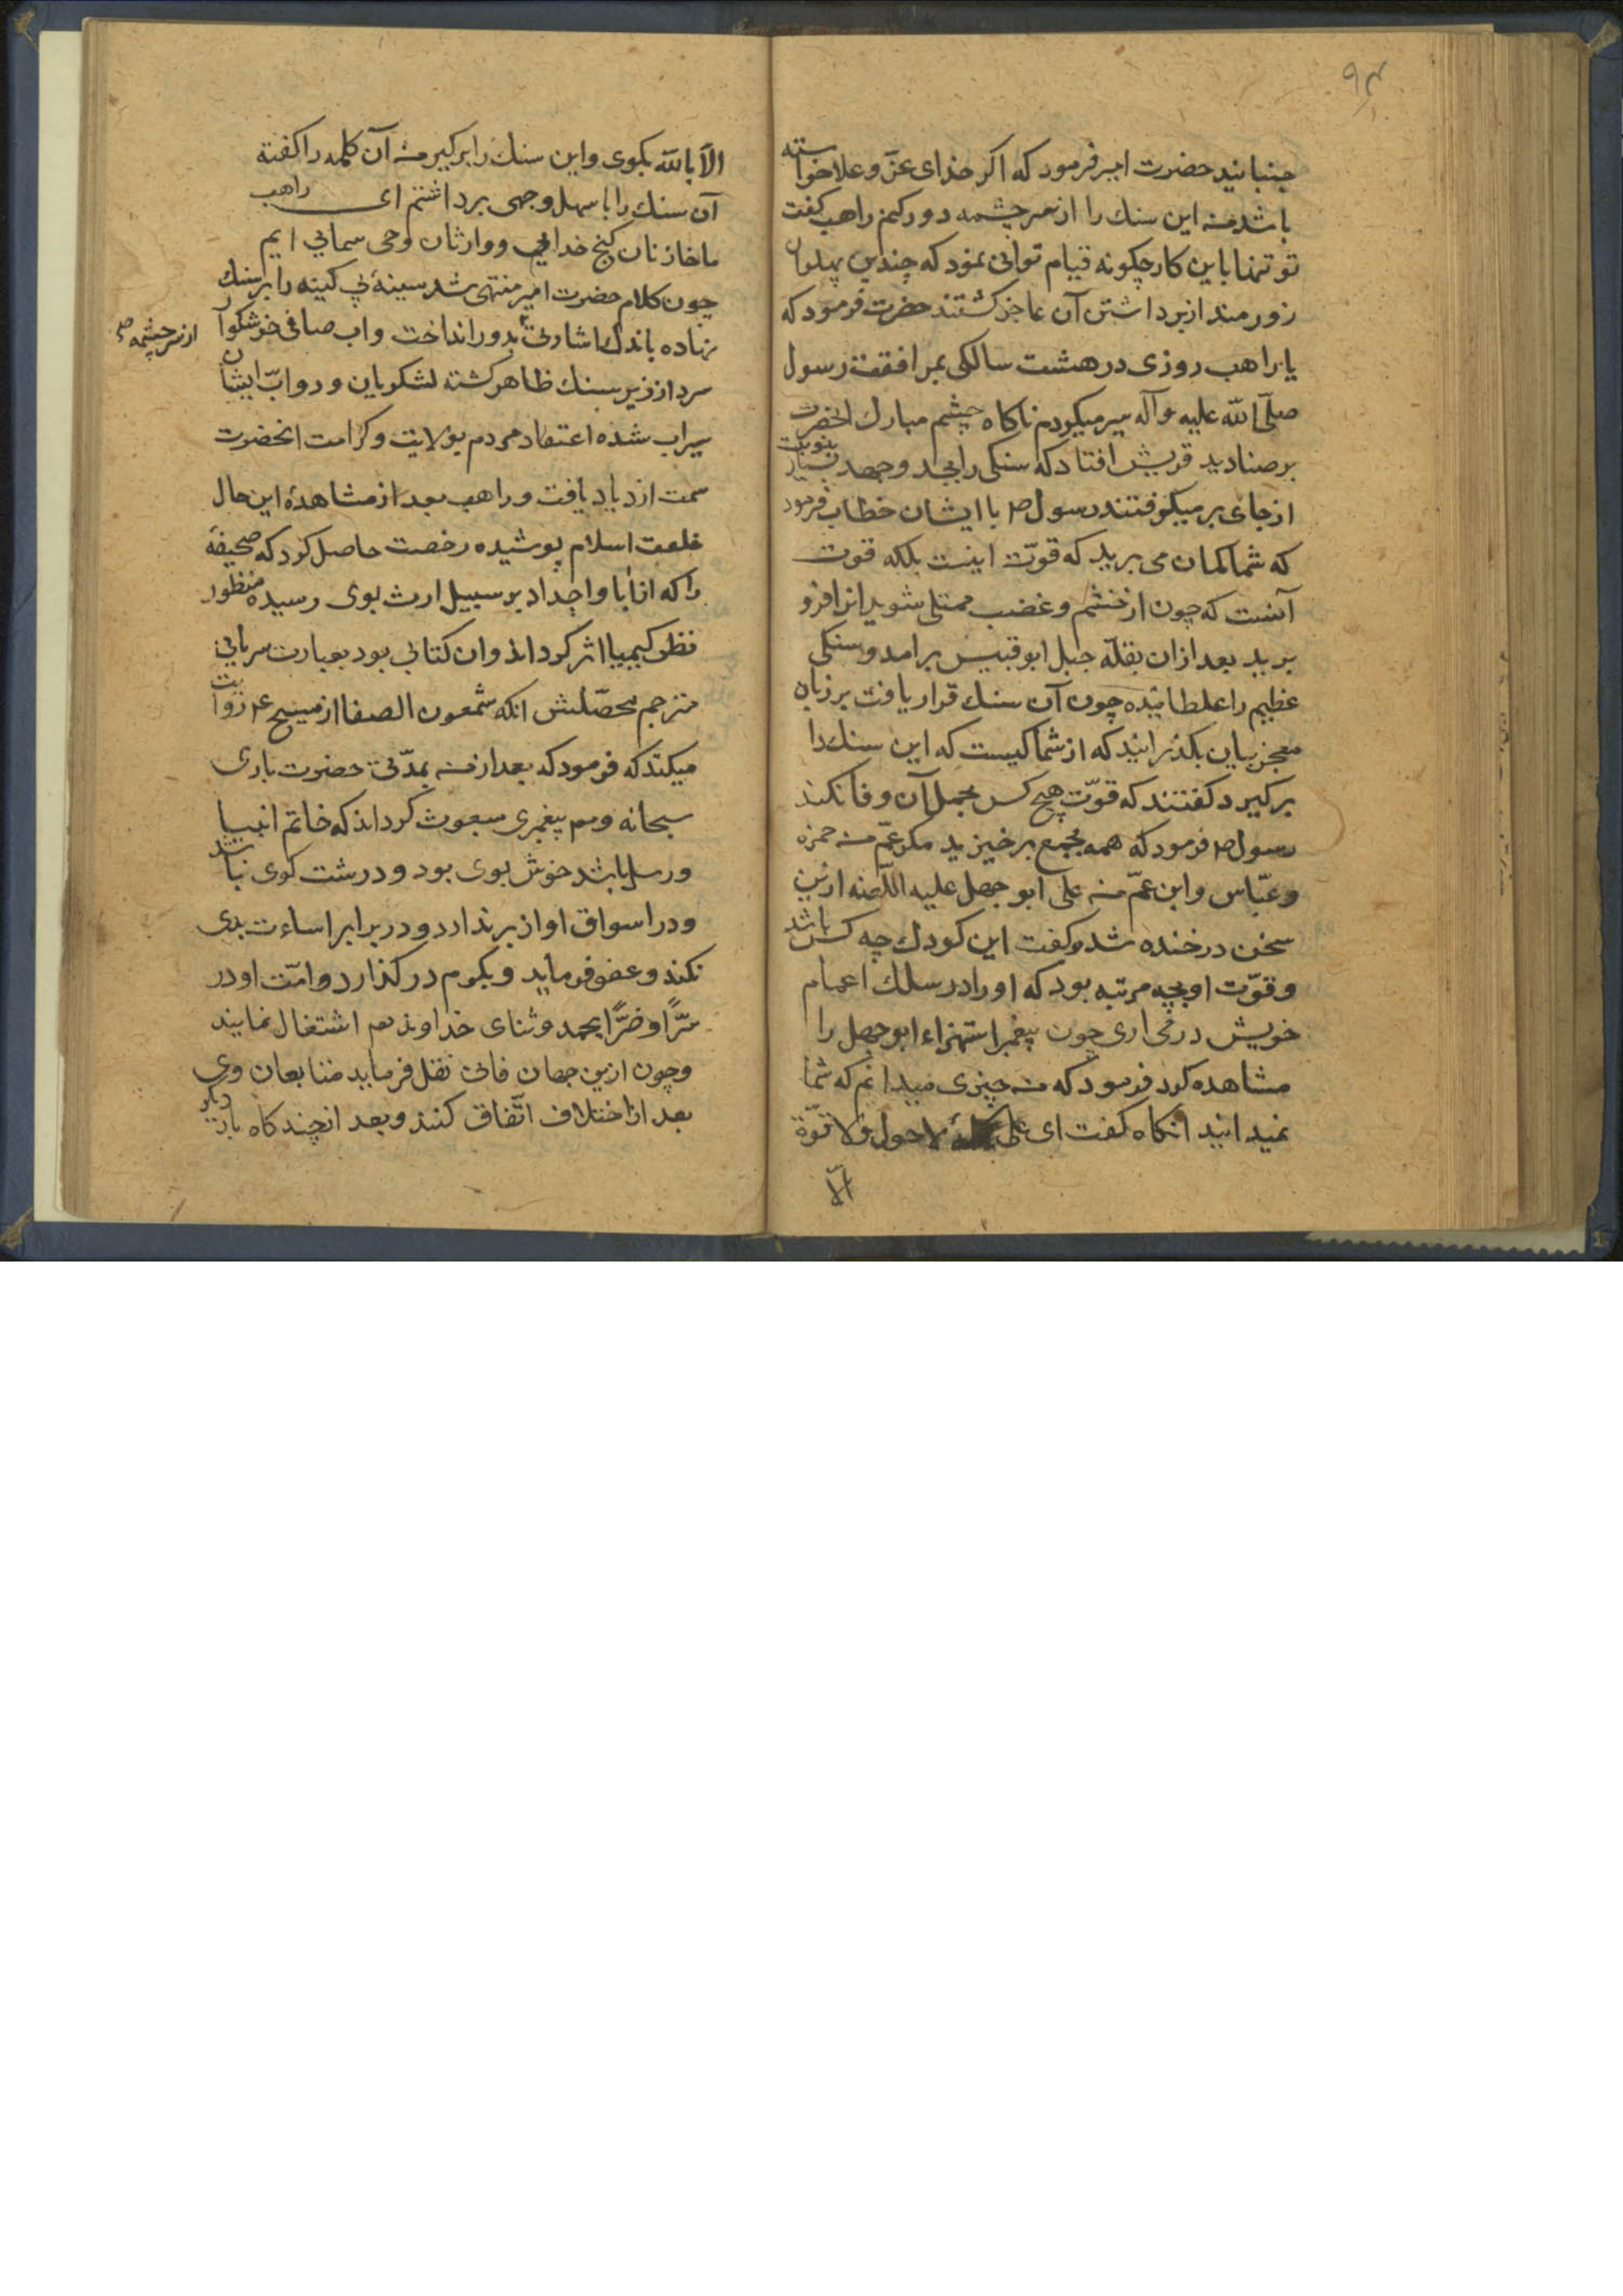 ۹۴
جنبانید حضرت امیر فرمود که اکر خدای عزّ و علا خواسته
باشد من این سنك را از سر چشمه دور کنم راهب کفت
تو تنها باین کار چکونه قیام توانی نمود که چندین پهلوان
زورمند از برداشتن آن عاجز کشتند حضرت فرمود که
یا راهب روزی در هشت سالکی بمرافقت رسول
صلّی الله علیه وآله سیر میکردم ناکاه چشم مبارك انحضرت
بر صنادید قریش افتاد که سنکی را بجد وجهد بسیار بنوبت
از جای بر میکرفتند رسول ص با ایشان خطاب فرمود
که شما کمان می برید که قوّت اینست بلکه قوت
آنست که چون از خشم و غضب ممتلی شوید انرا فرو
برید بعد ازان بقلّه جبل ابو قبیس برامد و سنکی
عظیم را غلطانیده چون آن سنك قرار یافت بر زبان
معجز بیان بکذرانید که از شما کیست که این سنك را
برکیرد کفتند که قوّت هیچ کس بحمل آن وفا نکند
رسول ص فرمود که همه بجمع برخیزید مکر عمّ من حمزه
و عبّاس و ابن عمّ من علی ابو جهل علیه اللّعنه ازین
سخن در خنده شد و کفت این کودك چه کس باشد
و قوّت او بچه مرتبه بود که او را در سلك اعمام
خویش در می اری چون پیغمبر استهزاء ابو جهل را
مشاهده کرد فرمود که من چیزی میدانم که شما
نمیدانید انکاه کفت ای علی کلمهٔ لا حول ولا قوّة
الّا
الّا بالله بکوی و این سنك را برکیر من آن کلمه را کفته
آن سنك را با سهل وجهی برداشتم ای راهب
ما خازنان کنج خدایی و وارثان وحی سمایی ایم
چون کلام حضرت امیر منتهی شد سینهٔ بی کینه را بر سنك
نهاده باندك اشارتی بدور انداخت و اب صافی خوشکوار
از سر چشمه صح
سرد از زیر سنك ظاهر کشته لشکریان و دوابّ ایشان
سیراب شده اعتقاد مردم بولایت و کرامت انحضرت
سمت ازدیاد یافت و راهب بعد از مشاهدهٔ این حال
خلعت اسلام پوشیده رخصت حاصل کرد که صحیفهٔ
را که از ابا و اجداد بر سبیل ارث بوی رسیده منظور
نظر کیمیا اثر کرداند و ان کتابی بود بعبارت سریانی
مترجم محصّلش انکه شمعون الصفا از مسیح ع روایت
میکند که فرمود که بعد از من بمدّتی حضرت باری
سبحانه و تعم پیغمبری مبعوث کرداند که خاتم انبیا
و رسل باشد خوش بوی بود و درشت کوی نباشد
و در اسواق اواز بر ندارد و در برابر اساءت بدی
نکند و عفو فرماید و بکرم در کذارد و امّت او در
سرّاً و ضرّاً بحمد و ثنای خداوند تعم اشتغال نمایند
و چون ازین جهان فانی نقل فرماید متابعان وی
بعد از اختلاف اتّفاق کنند و بعد از چند کاه باز دیکر